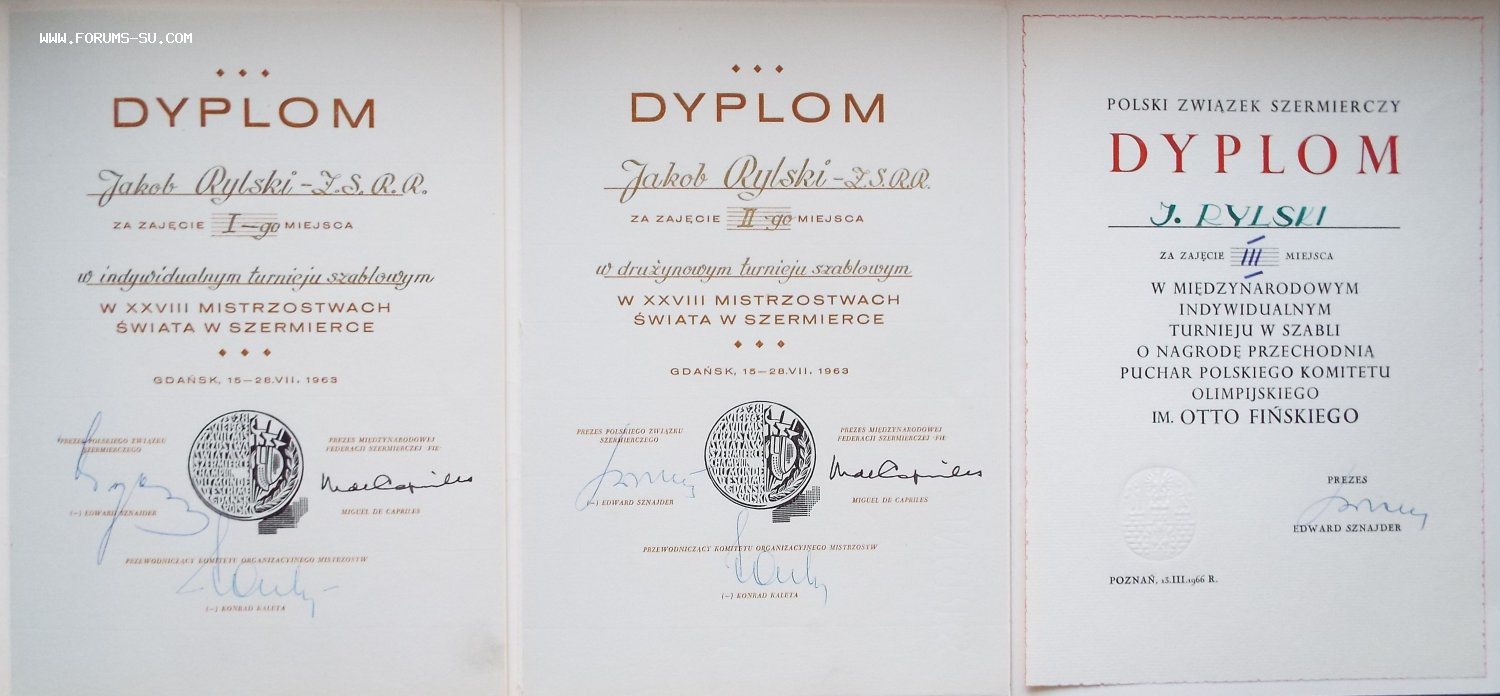 WWW.FORUMS-SU.COM
DYPLOM
Jakob Rylski – Z.S.R.R.
ZA ZAJĘCIE I–go MIEJSCA
w indywidualnym turnieju szablowym
W XXVIII MISTRZOSTWACH
ŚWIATA W SZERMIERCE
GDAŃSK, 15–28.VII. 1963
PREZES POLSKIEGO ZWIĄZKU
SZERMIERCZEGO
(–) EDWARD SZNAJDER
PREZES MIĘDZYNARODOWEJ
FEDERACJI SZERMIERCZEJ -FIE-
MIGUEL DE CAPRILES
PRZEWODNICZĄCY KOMITETU ORGANIZACYJNEGO MISTRZOSTW
(–) KONRAD KALETA
DYPLOM
Jakob Rylski – Z.S.R.R.
ZA ZAJĘCIE II-go MIEJSCA
w drużynowym turnieju szablowym
W XXVIII MISTRZOSTWACH
ŚWIATA W SZERMIERCE
GDAŃSK, 15–28.VII. 1963
PREZES POLSKIEGO ZWIĄZKU
SZERMIERCZEGO
(–) EDWARD SZNAJDER
PREZES MIĘDZYNARODOWEJ
FEDERACJI SZERMIERCZEJ -FIE-
MIGUEL DE CAPRILES
PRZEWODNICZĄCY KOMITETU ORGANIZACYJNEGO MISTRZOSTW
(–) KONRAD KALETA
POLSKI ZWIĄZEK SZERMIERCZY
DYPLOM
J. RYLSKI
ZA ZAJĘCIE III MIEJSCA
W MIĘDZYNARODOWYM
INDYWIDUALNYM
TURNIEJU W SZABLI
O NAGRODĘ PRZECHODNIĄ
PUCHAR POLSKIEGO KOMITETU
OLIMPIJSKIEGO
IM. OTTO FIŃSKIEGO
PREZES
EDWARD SZNAJDER
POZNAŃ, 13.III.1966 R.